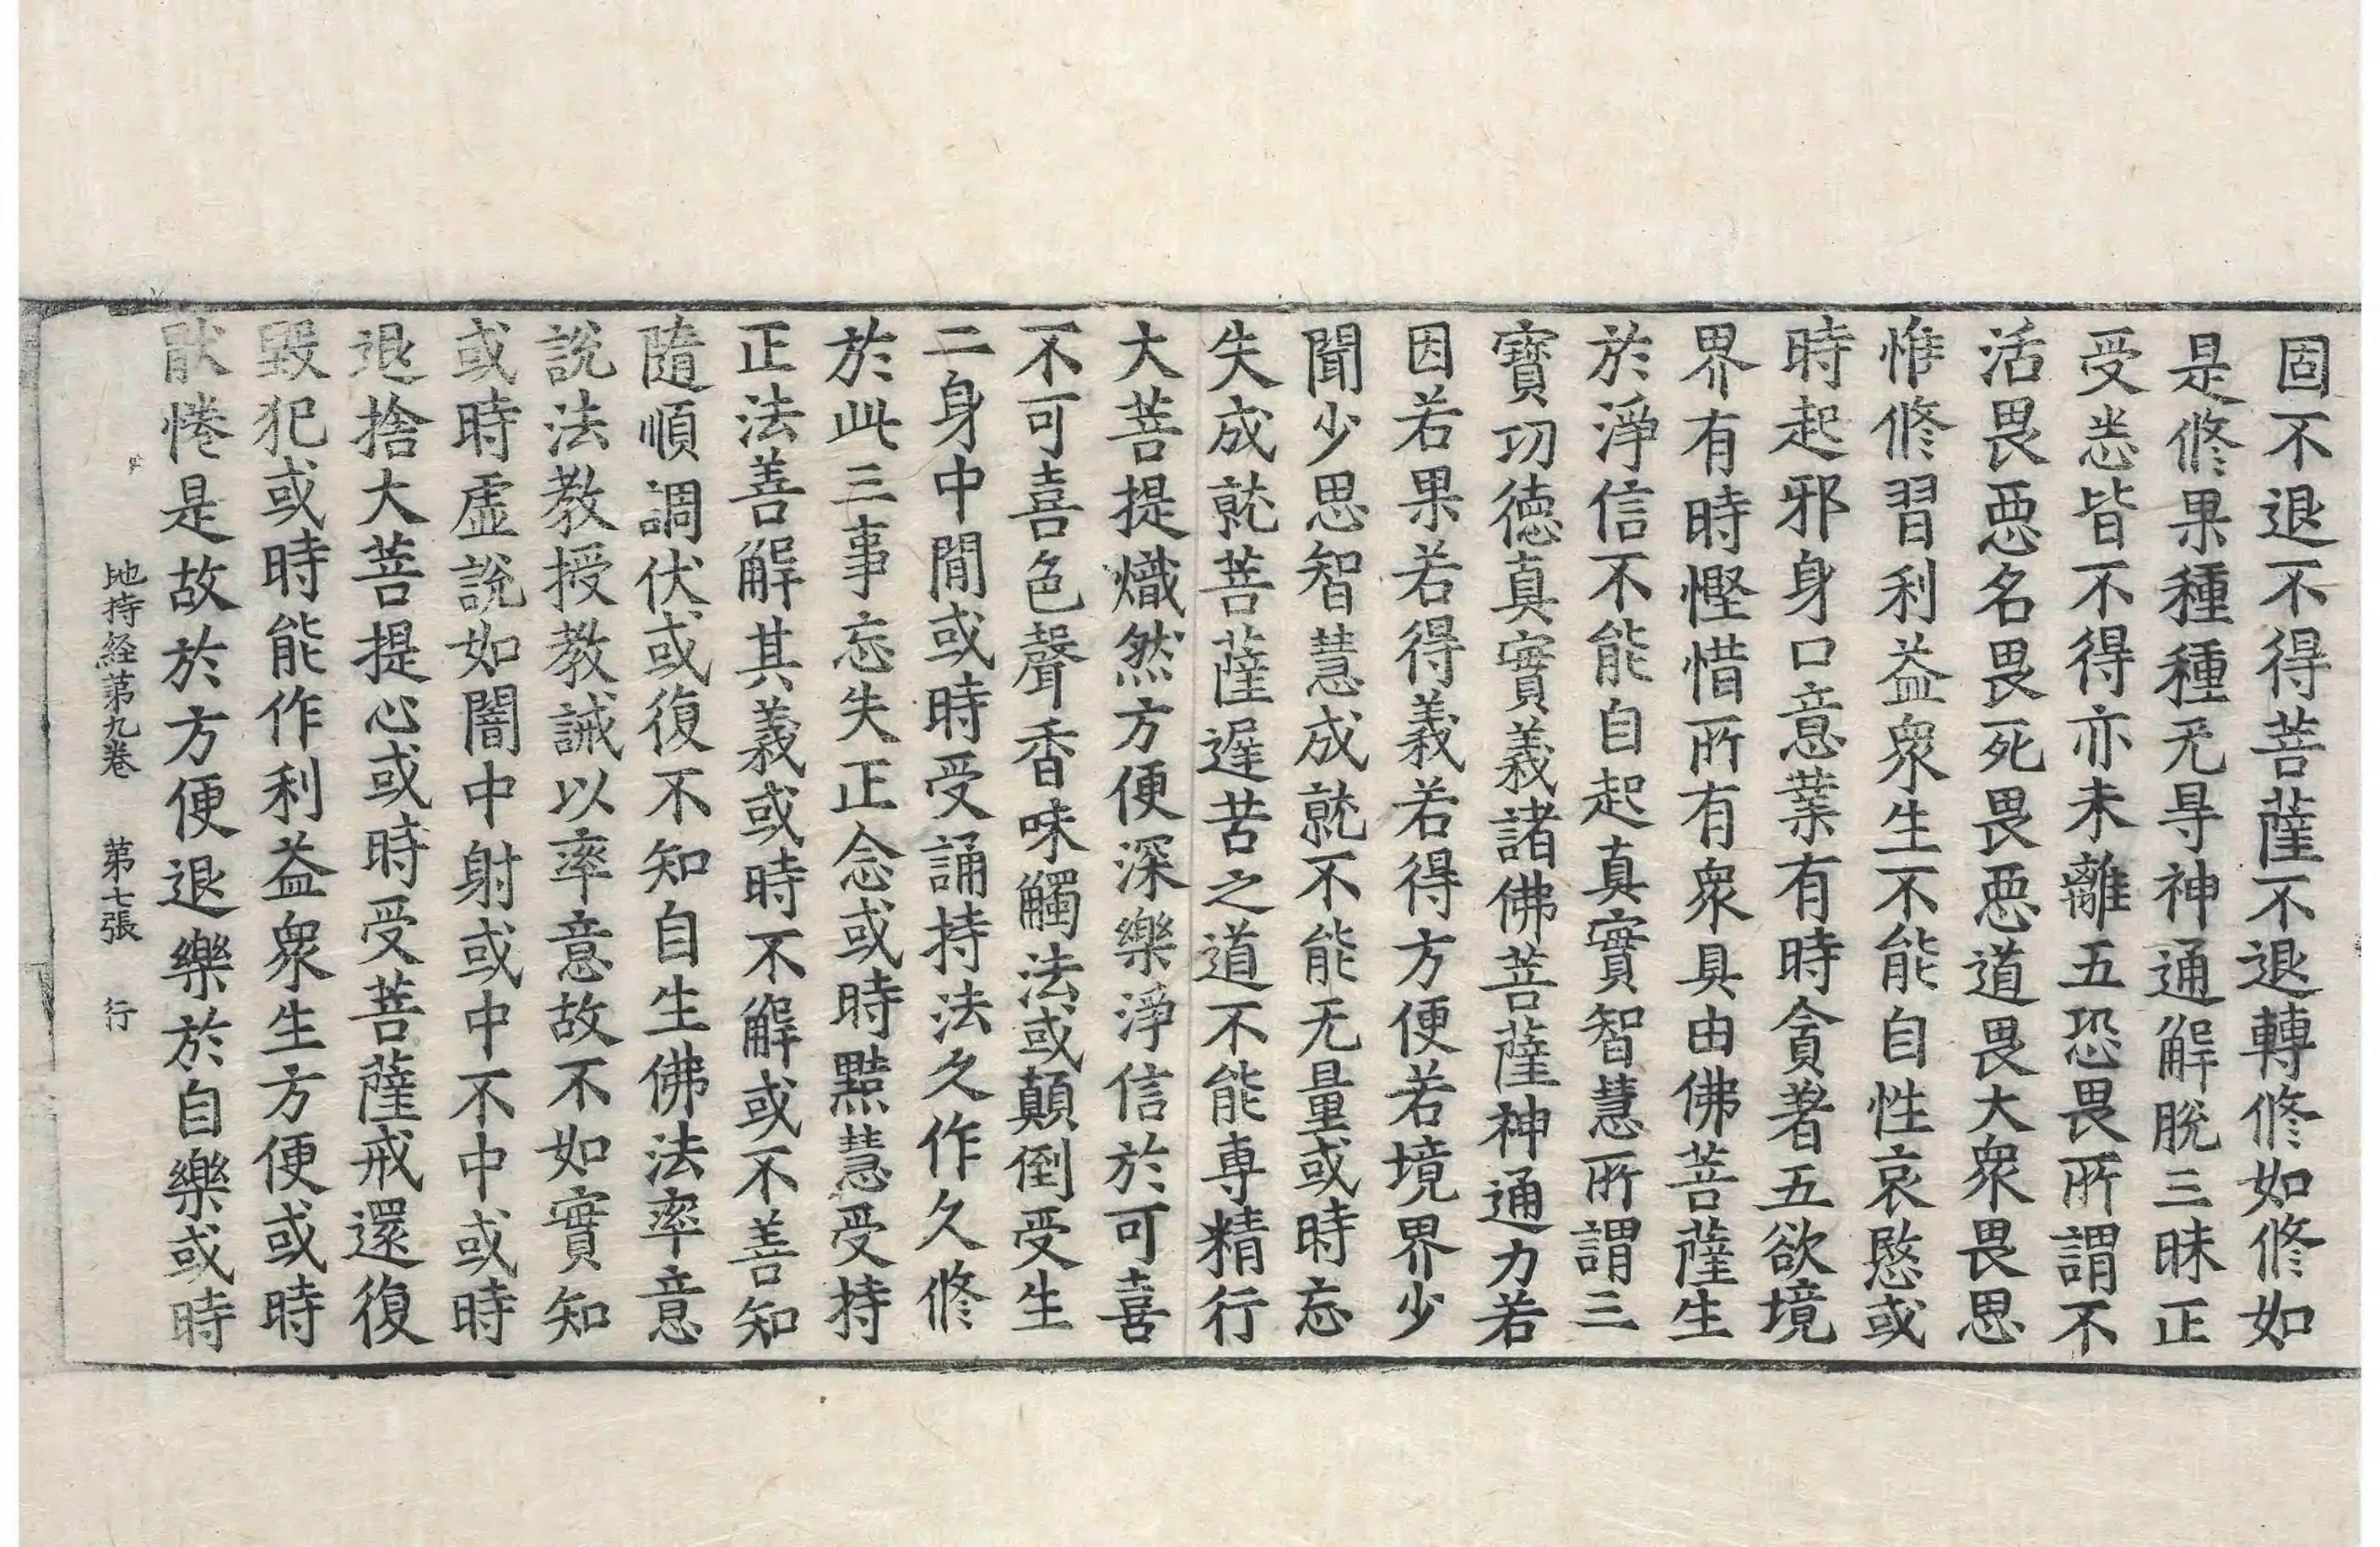 固不退不得菩薩不退轉修如修如
是修果種種无㝵神通解脫三昧正
受悉皆不得亦未離五恐畏所謂不
活畏惡名畏死畏惡道畏大衆畏思
惟修習利益衆生不能自性哀愍或
時起邪身口意業有時貪著五欲境
界有時慳惜所有衆具由佛菩薩生
於淨信不能自起真實智慧所謂三
寶功德真實義諸佛菩薩神通力若
因若果若得義若得方便若境界少
聞少思智慧成就不能无量或時忘
失成就菩薩遲苦之道不能專精行
大菩提熾然方便深樂淨信於可喜
不可喜色聲香味觸法或顛倒受生
二身中間或時受誦持法久作久修
於此三事忘失正念或時黠慧受持
正法善解其義或時不解或不善知
隨順調伏或復不知自生佛法率意
說法教授教誡以率意故不如實知
或時虛說如闇中射或中不中或時
退捨大菩提心或時受菩薩戒還復
毀犯或時能作利益衆生方便或時
猒惓是故於方便退樂於自樂或時
地持経第九卷　第七張　行